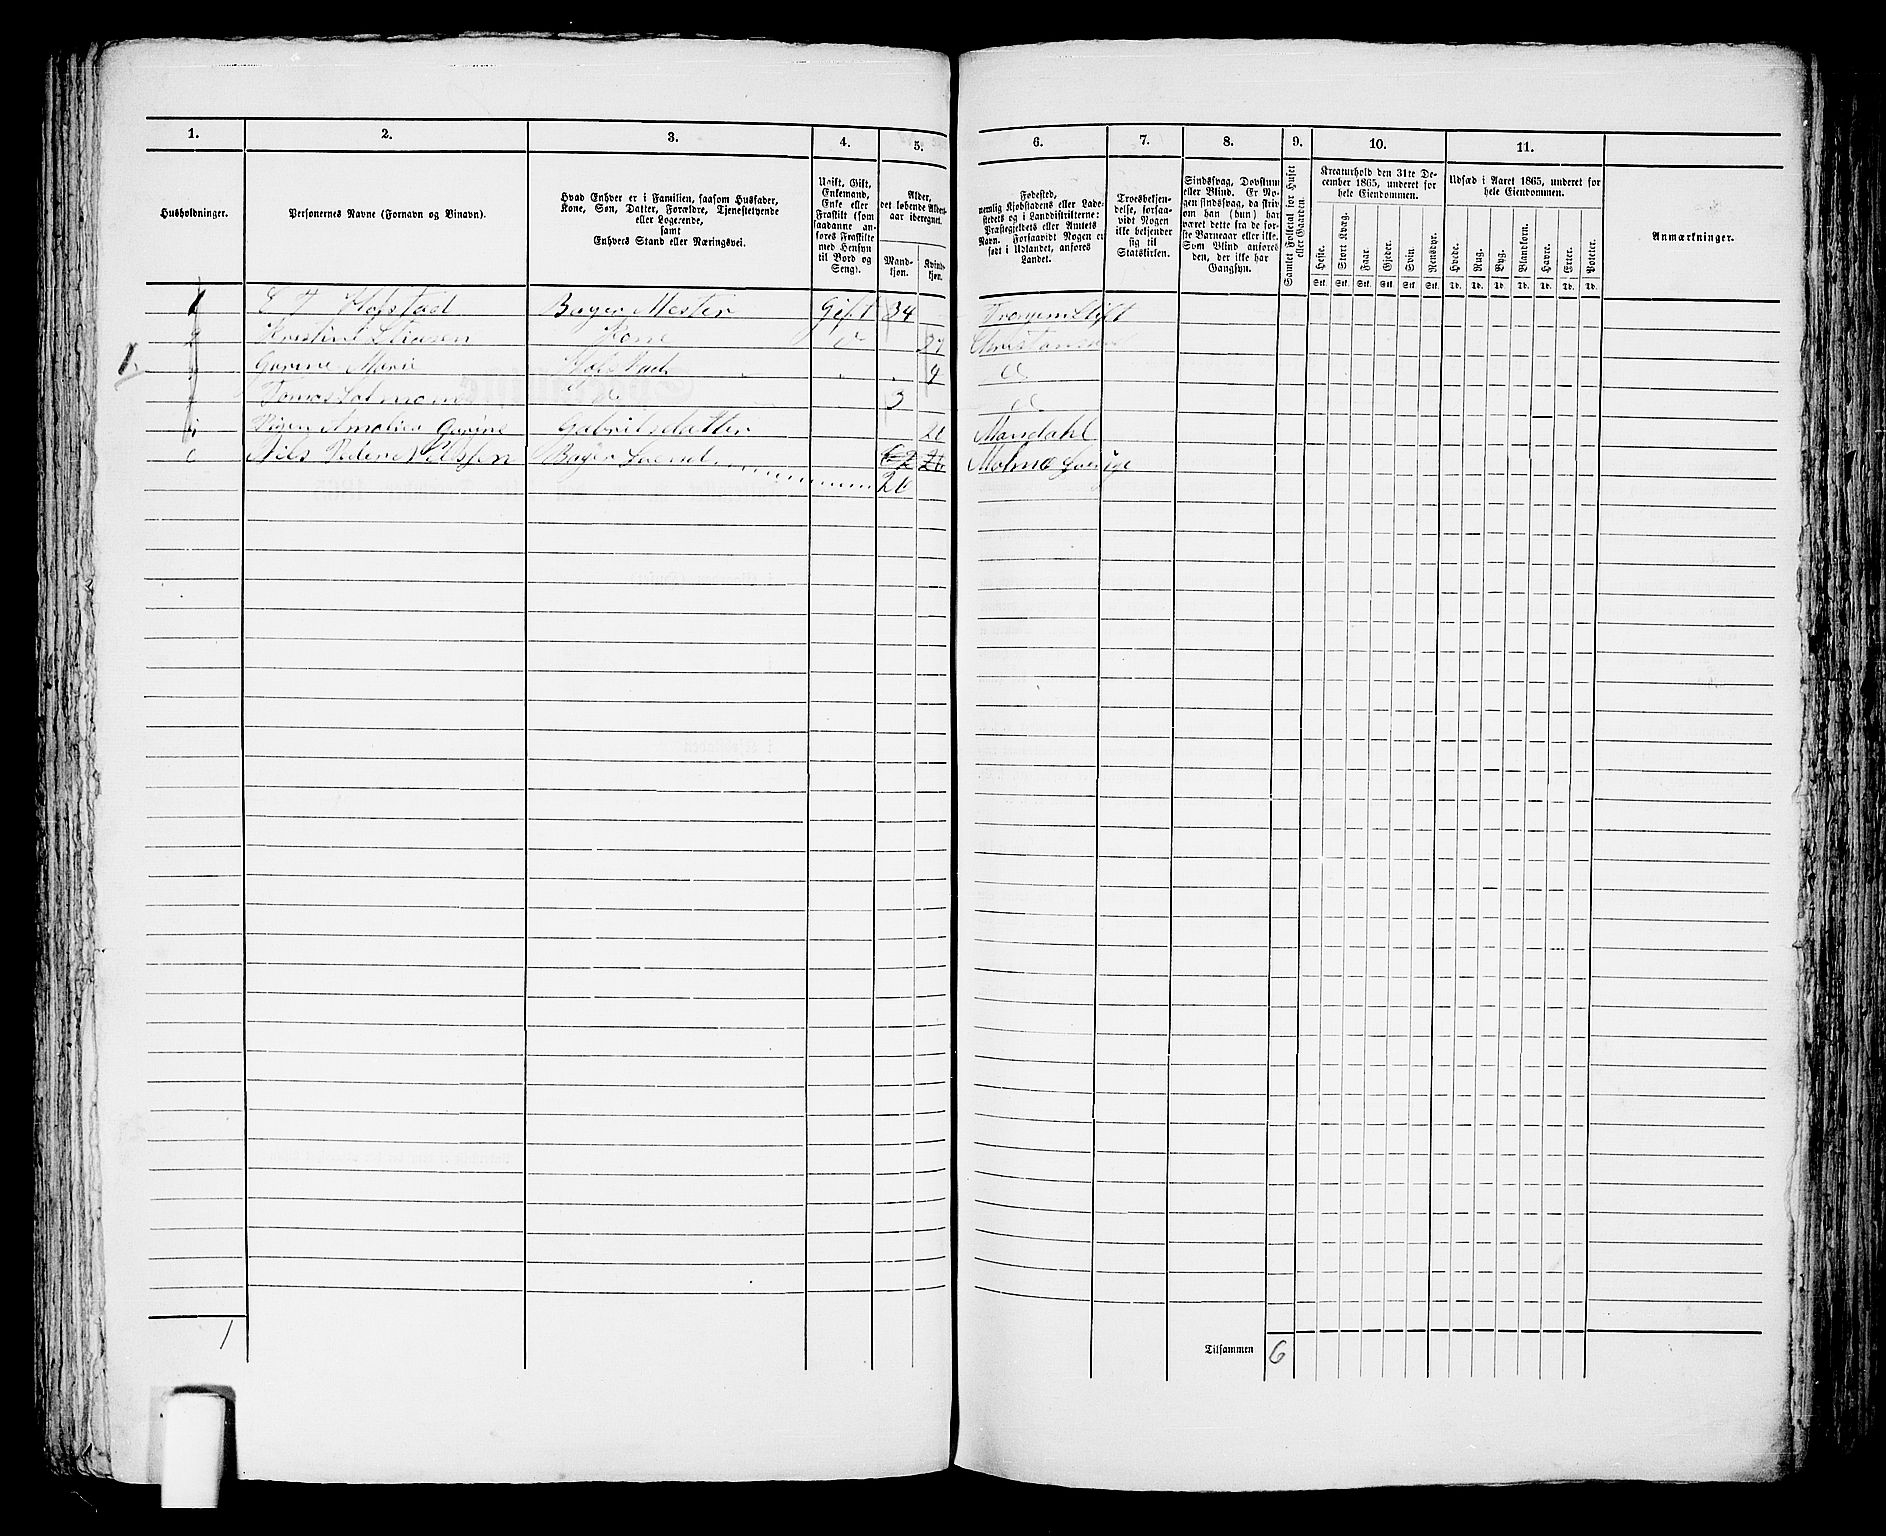 1.
2.
3.
4.
5.
6.
7.
8.
9.
10.
11.
Husholdninger.
Personernes Navne (Fornavn og Binavn).
Hvad Enhver er i Familien, saasom Husfader,
Kone, Søn, Datter, Forældre, Tjenestetyende
eller Logerende,
samt
Enhvers Stand eller Næringsvei.
Ugift, Gift,
Enkemand,
Enke eller
Fraskilt (som
saadanne an-
føres Fraskilte
med Hensyn
til Bord og
Seng).
Alder,
det løbende Alders-
aar iberegnet.
Mand-
kjøn.
Kvind-
kjøn.
Fødested,
nemlig Kjøbstadens eller Lade-
stedets og i Landdistrikterne:
Præstegjeldets eller Amtets
Navn. Forsaavidt Nogen er
født i Udlandet, anføres
Landet.
Troesbekjen-
delse, forsaa-
vidt Nogen
ikke bekjender
sig til
Statskirken.
Sindssvag, Døvstum
eller Blind. Er No-
gen sindssvag, da skriv
om han (hun) har
været dette fra de før-
ste Barneaar eller ikke.
Som Blind anføres
den, der ikke har
Gangsyn.
Samlet Folketal for Huset
eller Gaarden.
Kreaturhold den 31te De-
cember 1865, underet for
hele Eiendommen.
Heste.
Stort Kvæg.
Faar.
Gjeder.
Svin.
Rensdyr.
Stk. Stk. Stk. Stk. Stk. Stk.
Udsæd i Aaret 1865, underet for
hele Eiendommen.
Hvede.
Rug.
Byg.
Blandkorn.
Havre.
Erter.
Poteter.
Td. Td. Td. Td. Td. Td. Td.
Anmærkninger.
1 Hofstad Bager Mester Gift 34
Kone
1. Marie 4
3
Amalia Gurine Gabrielsdatter Mandahl
Nils Peder Nilssen Bager Svend Malmø Sverige
1
Tilsammen 6